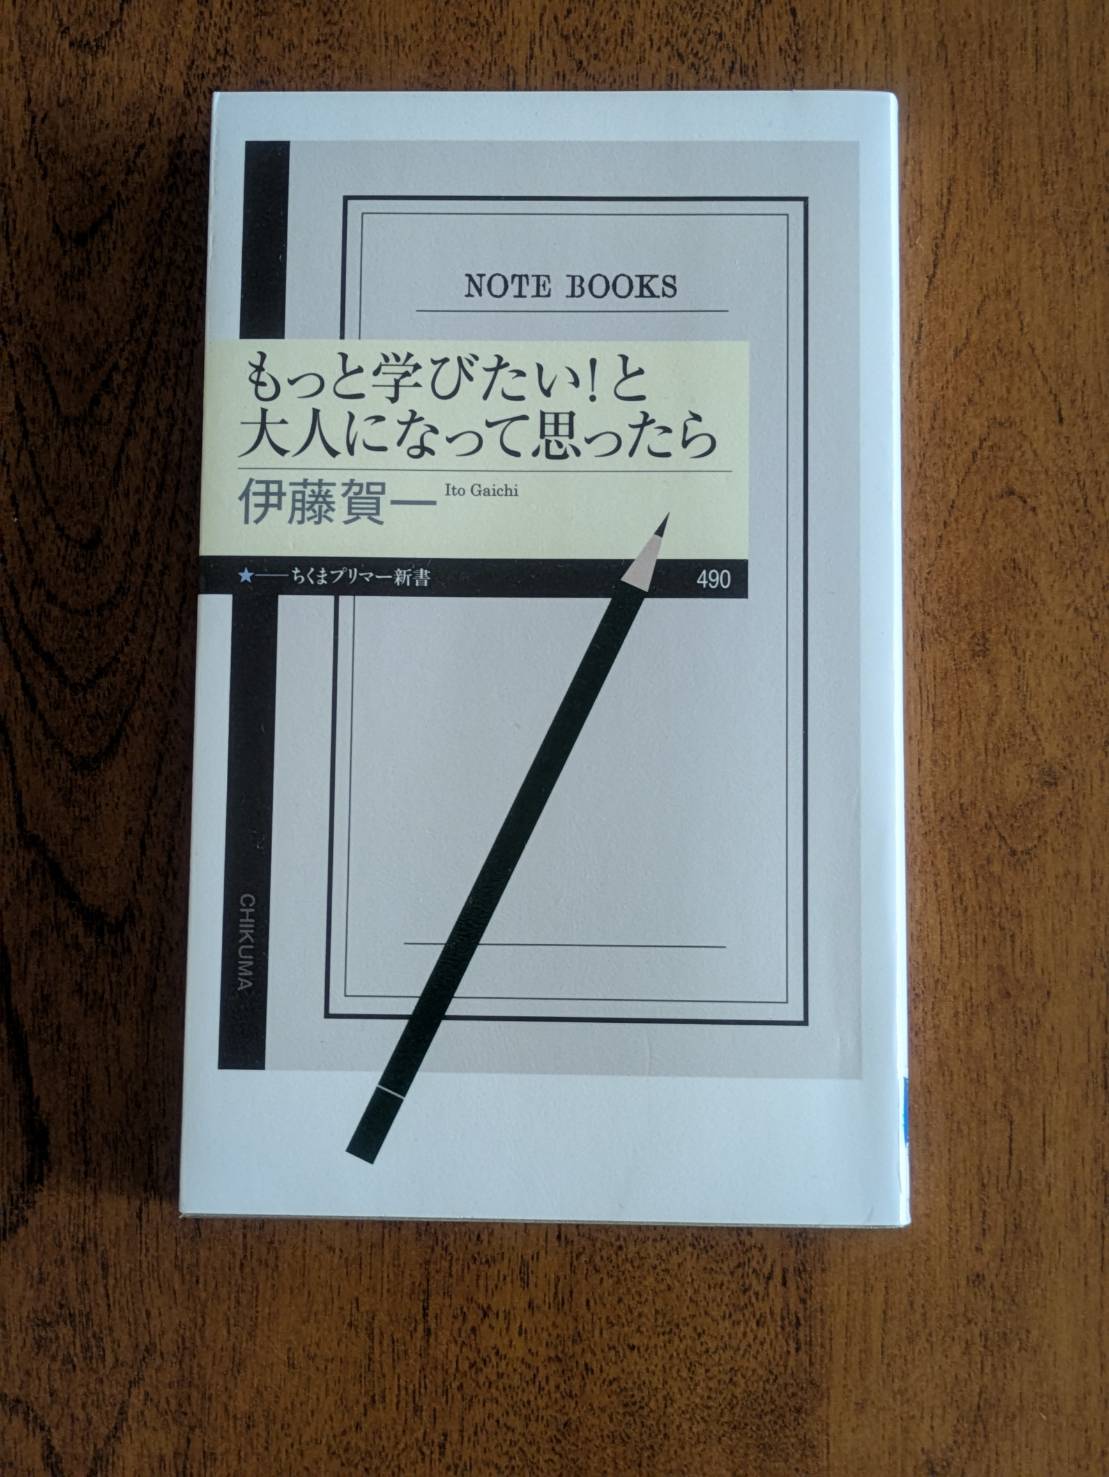 NOTE BOOKS
もっと学びたい!と
大人になって思ったら
伊藤賀一 Ito Gaichi
★——ちくまプリマー新書 490
CHIKUMA